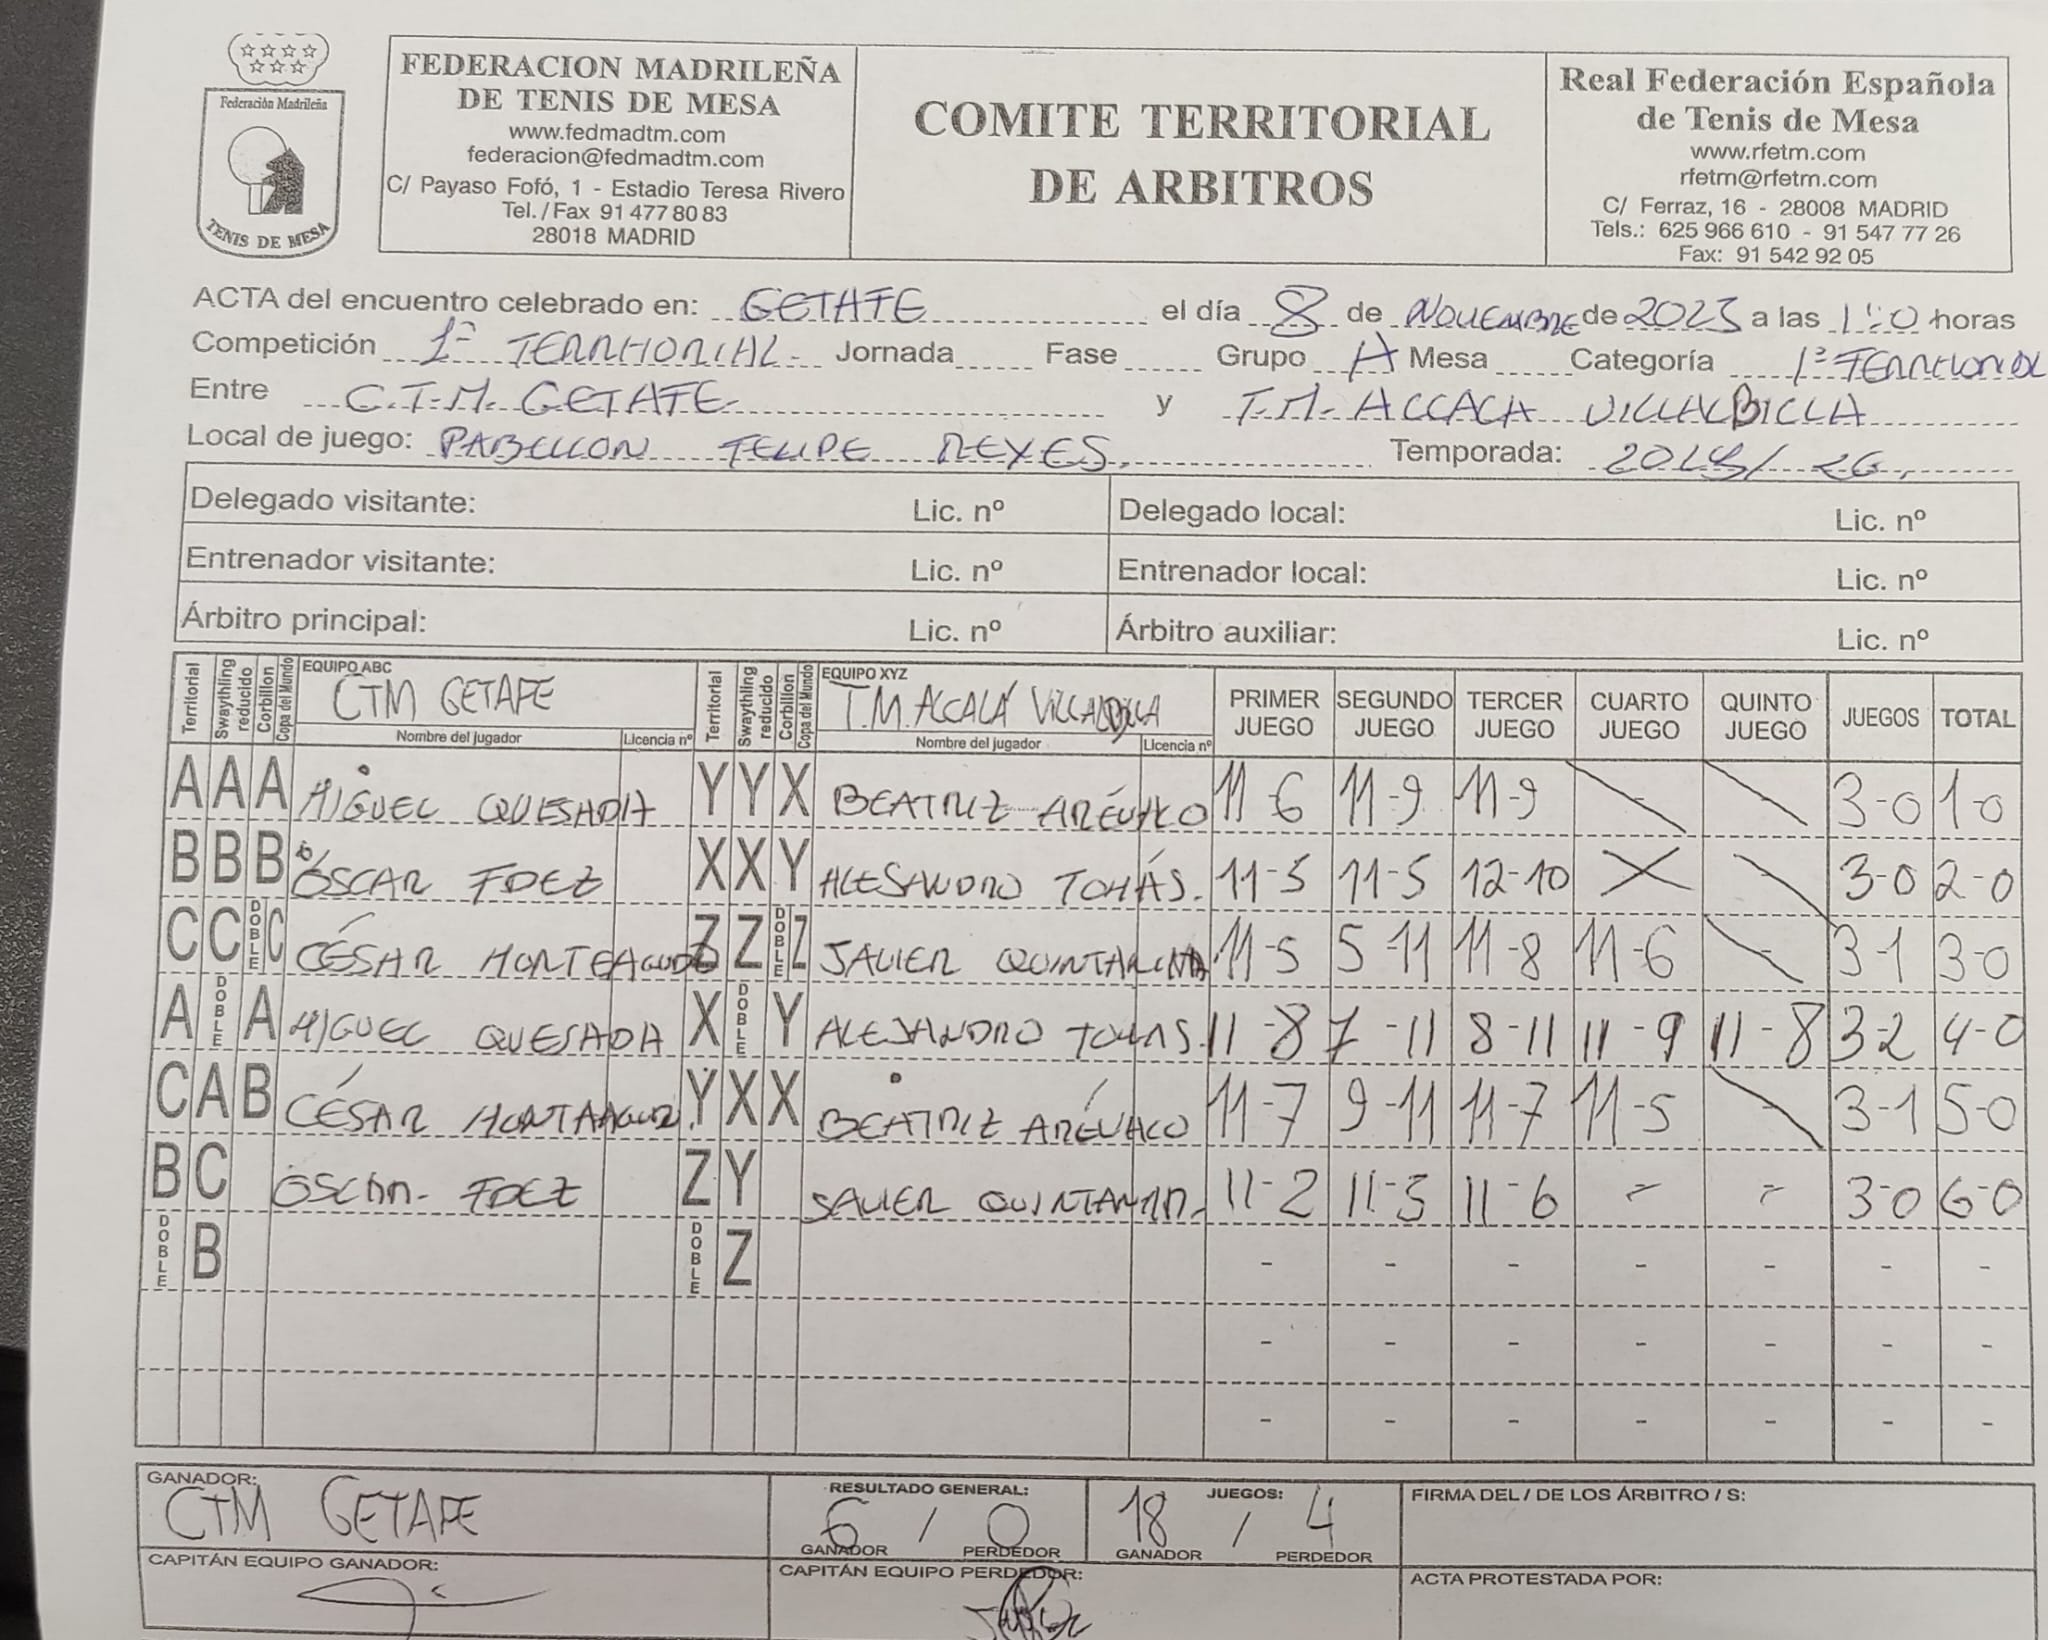 Federación Madrileña
TENIS DE MESA
FEDERACION MADRILEÑA
DE TENIS DE MESA
www.fedmadtm.com
federacion@fedmadtm.com
C/ Payaso Fofó, 1 - Estadio Teresa Rivero
Tel. / Fax 91 477 80 83
28018 MADRID
COMITE TERRITORIAL
DE ARBITROS
Real Federación Española
de Tenis de Mesa
www.rfetm.com
rfetm@rfetm.com
C/ Ferraz, 16 - 28008 MADRID
Tels.: 625 966 610 - 91 547 77 26
Fax: 91 542 92 05
ACTA del encuentro celebrado en: GETAFE el día 8 de NOVIEMBRE de 2025 a las horas
Competición 1ª TERRITORIAL. Jornada Fase Grupo A Mesa Categoría 1ª TERRITORIAL
Entre C.T.M. GETAFE y T.M. ALCALA VILLALBILLA
Local de juego: PABELLON FELIPE REYES. Temporada: 2025/26.
Delegado visitante: Lic. nº Delegado local: Lic. nº
Entrenador visitante: Lic. nº Entrenador local: Lic. nº
Árbitro principal: Lic. nº Árbitro auxiliar: Lic. nº
Territorial Swaythling reducido Corbillon Copa del Mundo EQUIPO ABC CTM GETAFE Nombre del jugador Licencia nº Territorial Swaythling reducido Corbillon Copa del Mundo EQUIPO XYZ T.M. ALCALÁ VILLALBILLA Nombre del jugador Licencia nº PRIMER JUEGO SEGUNDO JUEGO TERCER JUEGO CUARTO JUEGO QUINTO JUEGO JUEGOS TOTAL
A A A MIGUEL QUESADA Y Y X BEATRIZ ARÉVALO 11-6 11-9 11-9 - - 3-0 1-0
B B B ÓSCAR FDEZ X X Y ALESANDRO TOMÁS. 11-5 11-5 12-10 - 3-0 2-0
C C DOBLE C CÉSAR MONTEAGUDO Z Z DOBLE Z JAVIER QUINTANILLA 11-5 5-11 11-8 11-6 - 3-1 3-0
A DOBLE A MIGUEL QUESADA X DOBLE Y ALEJANDRO TOMAS. 11-8 7-11 8-11 11-9 11-8 3-2 4-0
C A B CÉSAR Y X X BEATRIZ ARÉVALO 11-7 9-11 11-7 11-5 - 3-1 5-0
B C ÓSCAR FDEZ Z Y JAVIER 11-2 11-5 11-6 - - 3-0 6-0
DOBLE B DOBLE Z - - - - - - -
- - - - - - -
- - - - - - -
GANADOR: CTM GETAFE RESULTADO GENERAL: 6 / 0 GANADOR PERDEDOR JUEGOS: 18 / 4 GANADOR PERDEDOR FIRMA DEL / DE LOS ÁRBITRO / S:
CAPITÁN EQUIPO GANADOR: CAPITÁN EQUIPO PERDEDOR: ACTA PROTESTADA POR: